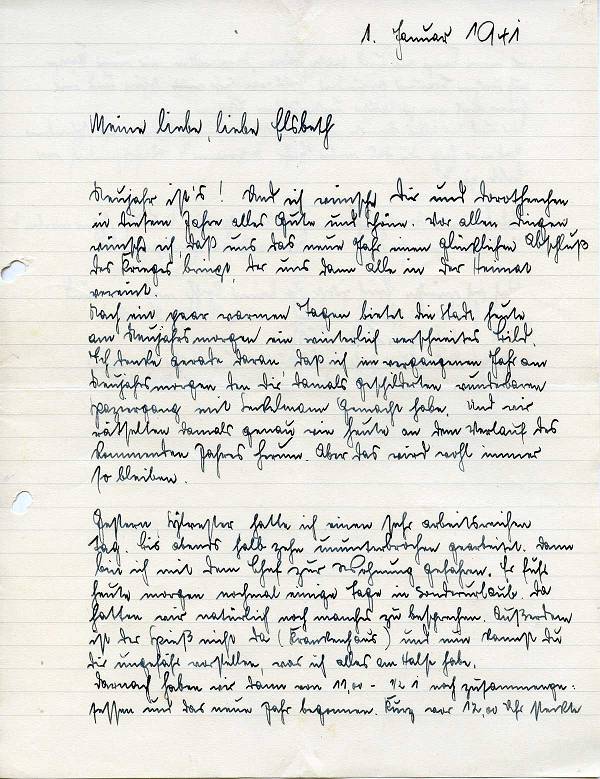 1. Januar 1941
Meine liebe, liebe Elsbeth
Neujahr ist's! Und ich wünsche Dir und Dorotheechen
in diesem Jahre alles Gute und Schöne. Vor allen Dingen
wünsche ich, daß uns das neue Jahr einen glücklichen Abschluß
des Krieges bringt, der uns dann alle in der Heimat
vereint.
Nach ein paar warmen Tagen bietet die Stadt heute
am Neujahrsmorgen ein winterlich verschneites Bild.
Ich denke gerade daran, daß ich im vergangenen Jahr am
Neujahrsmorgen den Dir damals geschilderten wunderbaren
Spaziergang mit gemacht habe. Und wir
rätselten damals genau wie heute an dem Verlauf des
kommenden Jahres herum. Aber das wird wohl immer
so bleiben.
Gestern, Sylvester hatte ich einen sehr arbeitsreichen
Tag. Bis abends halb zehn ununterbrochen gearbeitet. Dann
bin ich mit dem Chef zur Wohnung gefahren. Er fuhr
heute morgen nochmal einige Tage in Sonderurlaub. Da
hatten wir natürlich noch manches zu besprechen. Außerdem
ist der Spieß nicht da (Krankenhaus) und nun kannst Du
Dir ungefähr vorstellen, was ich alles am Halse habe.
Darnach haben wir dann von 11,00 - 1/2 1 noch zusammenge=
sessen und das neue Jahr begonnen. Kurz vor 12,00 Uhr steckte